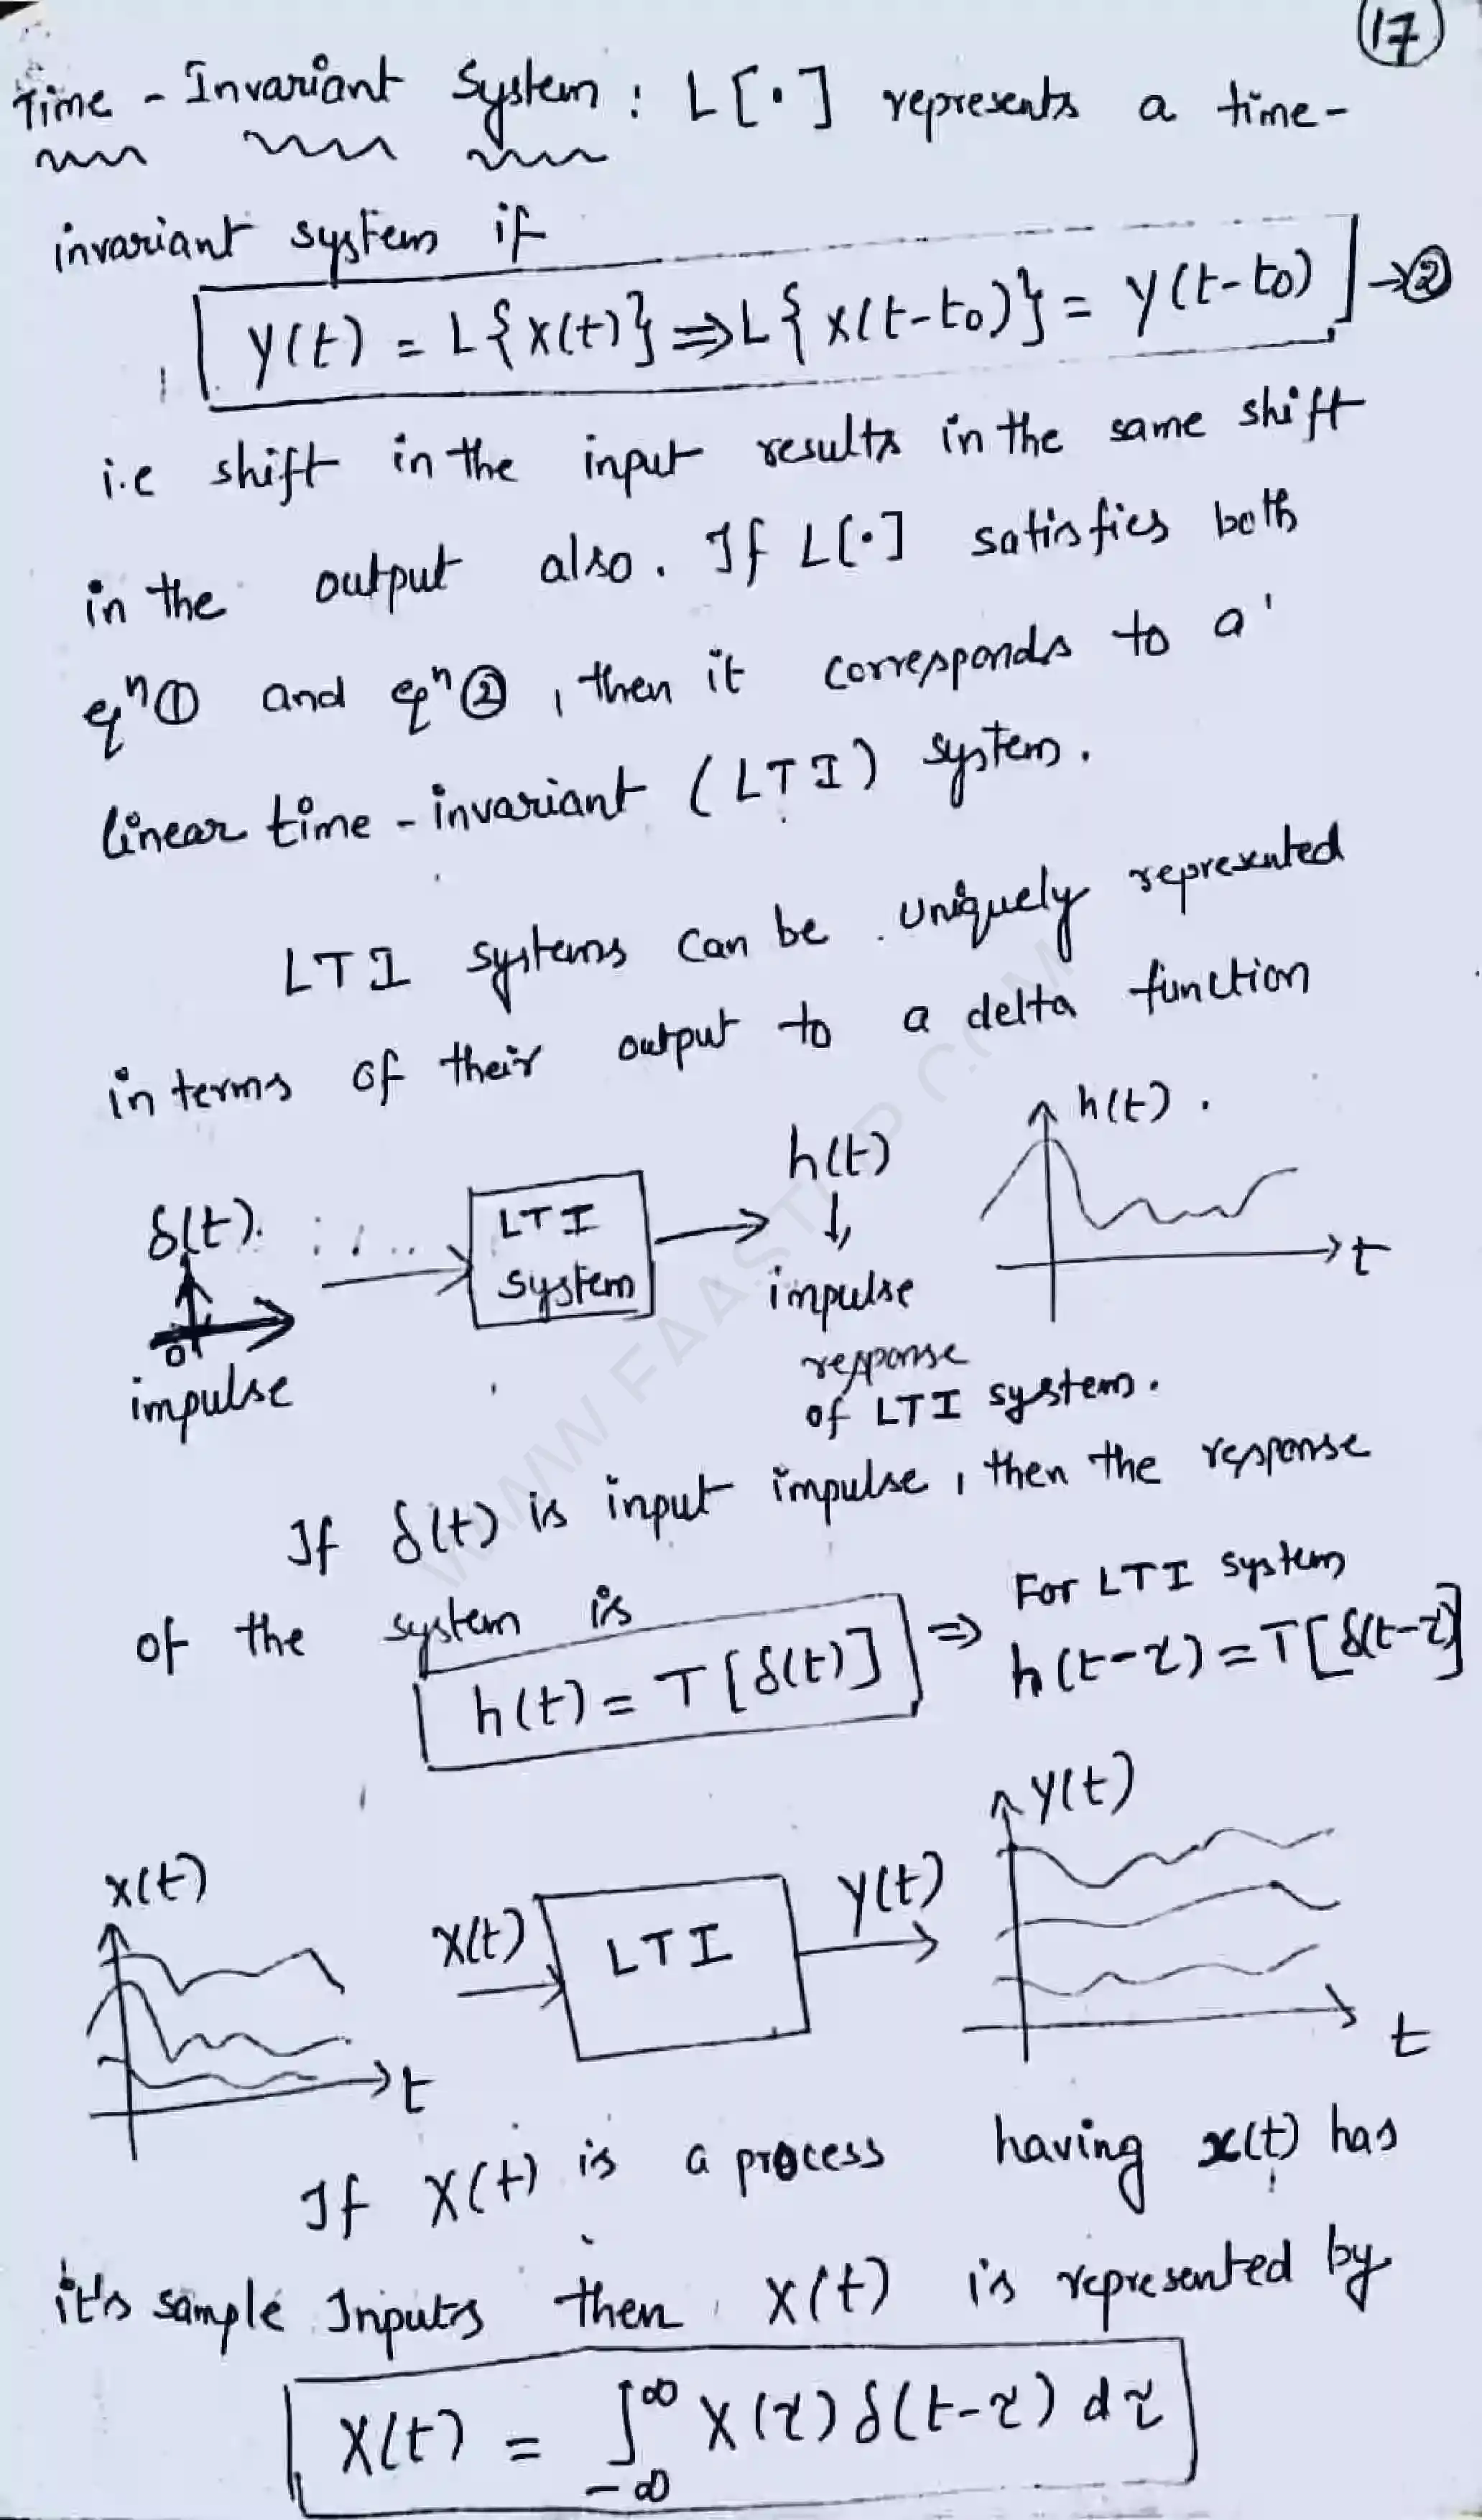 17
Time - Invariant System : L[•] represents a time-
invariant system if
Y(t) = L{X(t)} ⇒ L{X(t-t0)} = Y(t-t0) → ②
i.e shift in the input results in the same shift
in the output also. If L[•] satisfies both
eqⁿ① and eqⁿ②, then it corresponds to a
linear time - invariant (LTI) system.
LTI systems can be uniquely represented
in terms of their output to a delta function
δ(t).
0
impulse
LTI
system
h(t)
↓
impulse
response
of LTI system.
h(t).
t
If δ(t) is input impulse, then the response
of the system is
h(t) = T[δ(t)] ⇒ For LTI system
h(t-τ) = T[δ(t-τ)]
X(t)
t
X(t)
LTI
Y(t)
Y(t)
t
If X(t) is a process having x(t) has
it's sample Inputs then X(t) is represented by
X(t) = ∫_{-∞}^{∞} X(τ) δ(t-τ) dτ
WWW.FAASTUP.COM